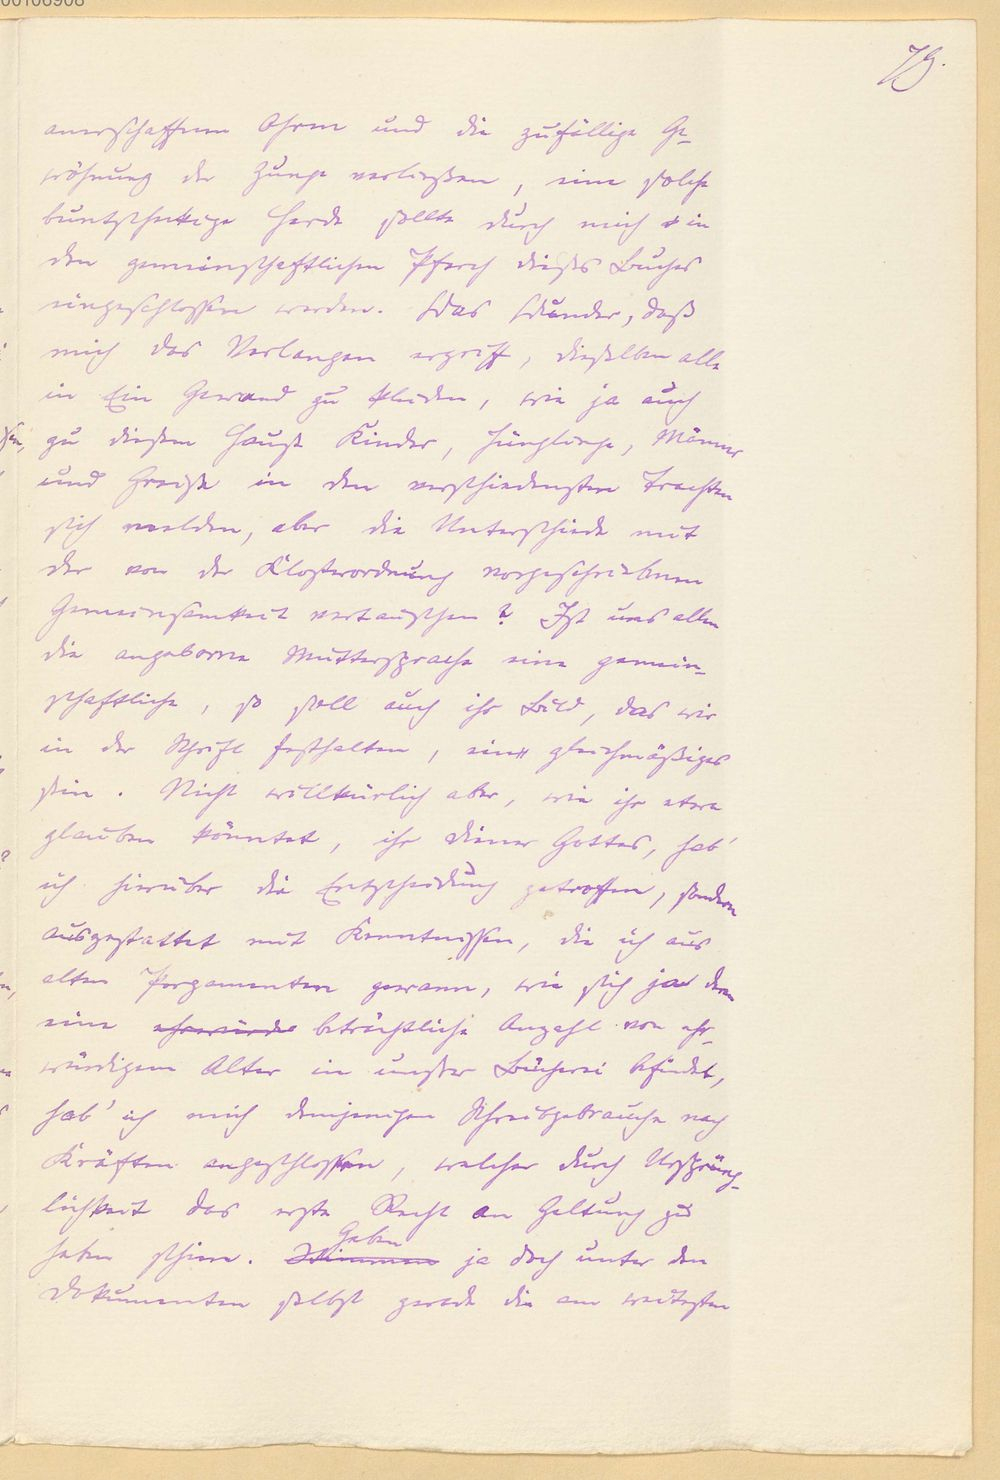 00106908
79.
anerschaffnen Ohren und die zufällige Ge-
wöhnung der Zunge verließen, eine solche
buntscheckige Herde sollte durch mich in
den gemeinschaftlichen Pferch dieses Buches
eingeschlossen werden. Was Wunder, daß
mich das Verlangen ergriff, dieselben alle
in Ein Gewand zu kleiden, wie ja auch
zu diesem Hause Kinder, Jünglinge, Männer
und Greise in den verschiedensten Trachten
sich melden, aber die Unterschiede mit
der von der Klosterordnung vorgeschriebenen
Gemeinsamkeit vertauschen? Ist uns allen
die angeborne Muttersprache eine gemein-
schaftliche, so soll auch ihr Bild, das wir
in der Schrift festhalten, ein gleichmäßiges
sein. Nicht willkürlich aber, wie ihr etwa
glauben könntet, ihr Diener Gottes, hab'
ich hierüber die Entscheidung getroffen, sondern
ausgestattet mit Kenntnissen, die ich aus
alten Pergamenten gewann, wie sich ja deren
eine ehrwürdi beträchtliche Anzahl von ehr-
würdigem Alter in unsrer Bücherei befindet,
hab' ich mich demjenigen Schreibgebrauche nach
Kräften angeschlossen, welcher durch Ursprüng-
lichkeit das erste Recht an Geltung zu
haben schien. Geben ja doch unter den
Dokumenten selbst gerade die am weitesten